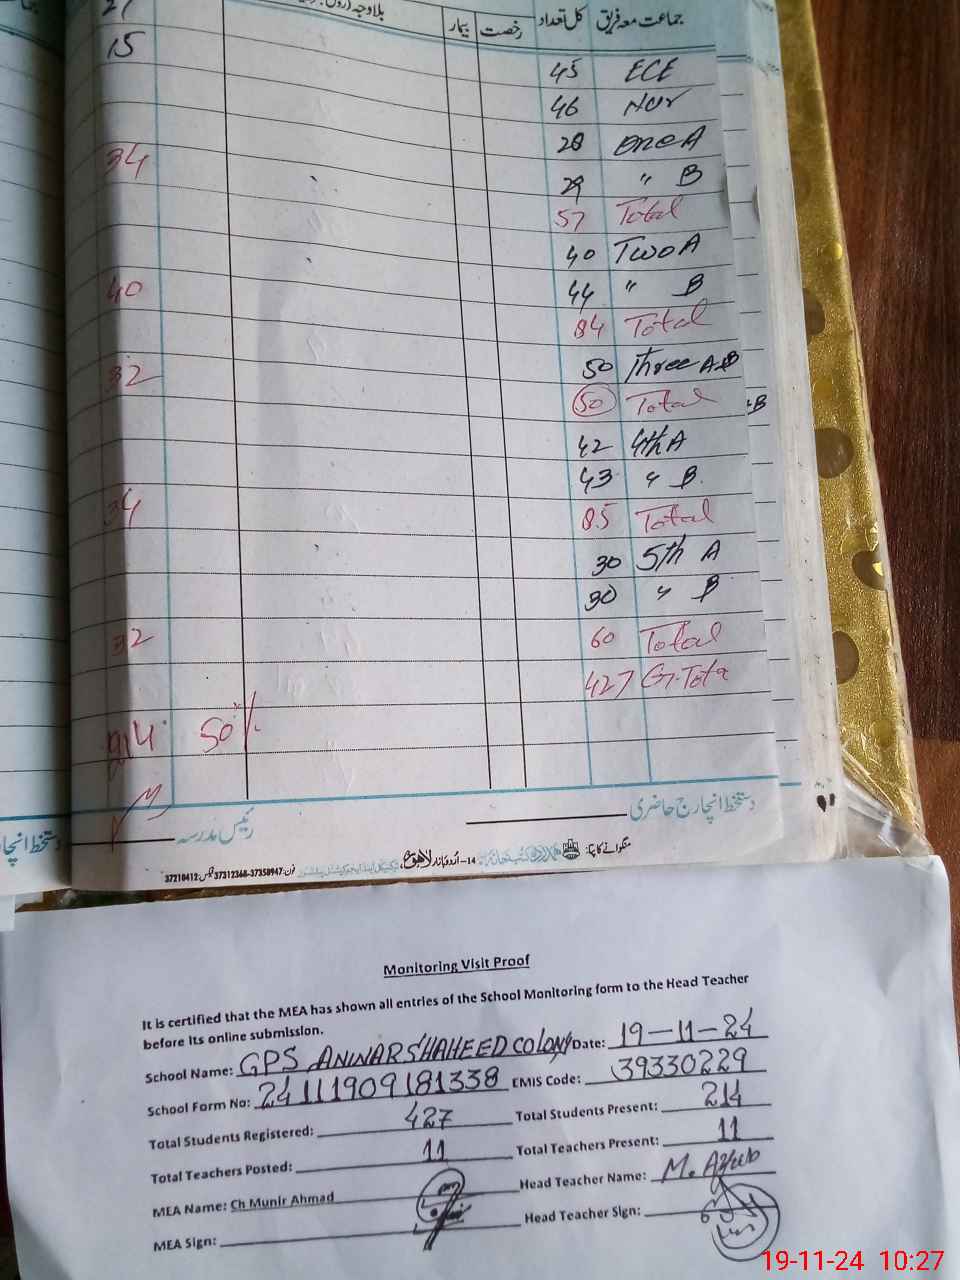 جماعت معہ فریق کل تعداد رخصت بیمار بلاوجہ
27
45 ECE 15
46 Nur
28 One A
29 " B 34
57 Total
40 Two A
44 " B 40
84 Total
50 Three A+B 32
50 Total
+B
42 4th A
43 " B
85 Total 34
30 5th A
30 " B
60 Total 32
427 G.Tota
214 50%
دستخط انچارج حاضری رئیس مدرسہ
دستخط انچار
منگوانے کا پتہ: 14-اُردو بازار لاہور فون: 37312368-37358947 فیکس: 37210412
Monitoring Visit Proof
It is certified that the MEA has shown all entries of the School Monitoring form to the Head Teacher
before its online submission.
School Name: GPS ANWAR SHAHEED COLONY Date: 19-11-24
School Form No: 24111909181338 EMIS Code: 39330229
Total Students Registered: 427 Total Students Present: 214
Total Teachers Posted: 11 Total Teachers Present: 11
MEA Name: Ch Munir Ahmad Head Teacher Name: M. Ayub
MEA Sign: Head Teacher Sign:
19-11-24 10:27